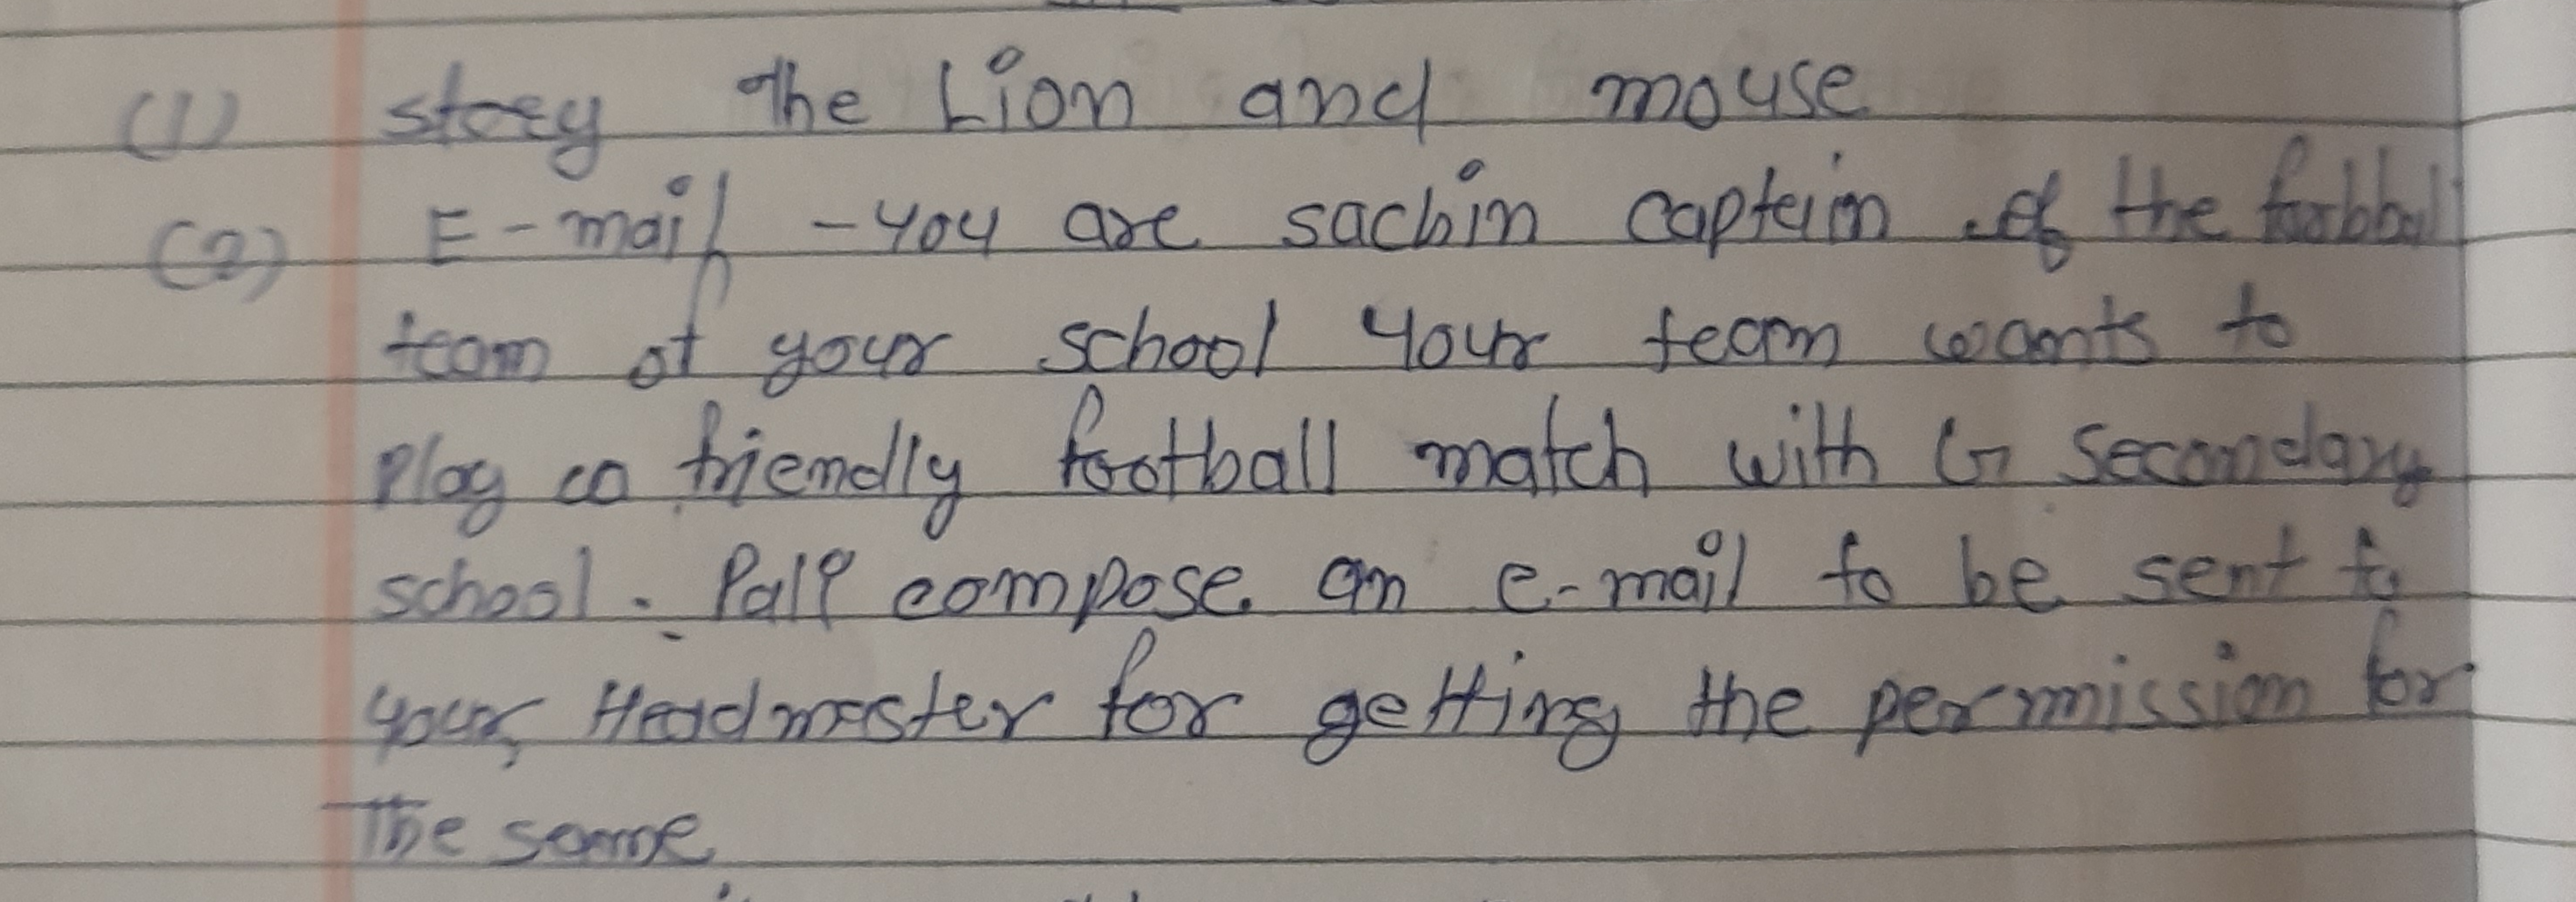 (1) story The Lion and mouse
(2) E-mail - you are sachin captain of the football
team of your school your team wants to
play a friendly football match with G Secondary
school. Pali compose an e-mail to be sent to
your Headmaster for getting the permission for
The same